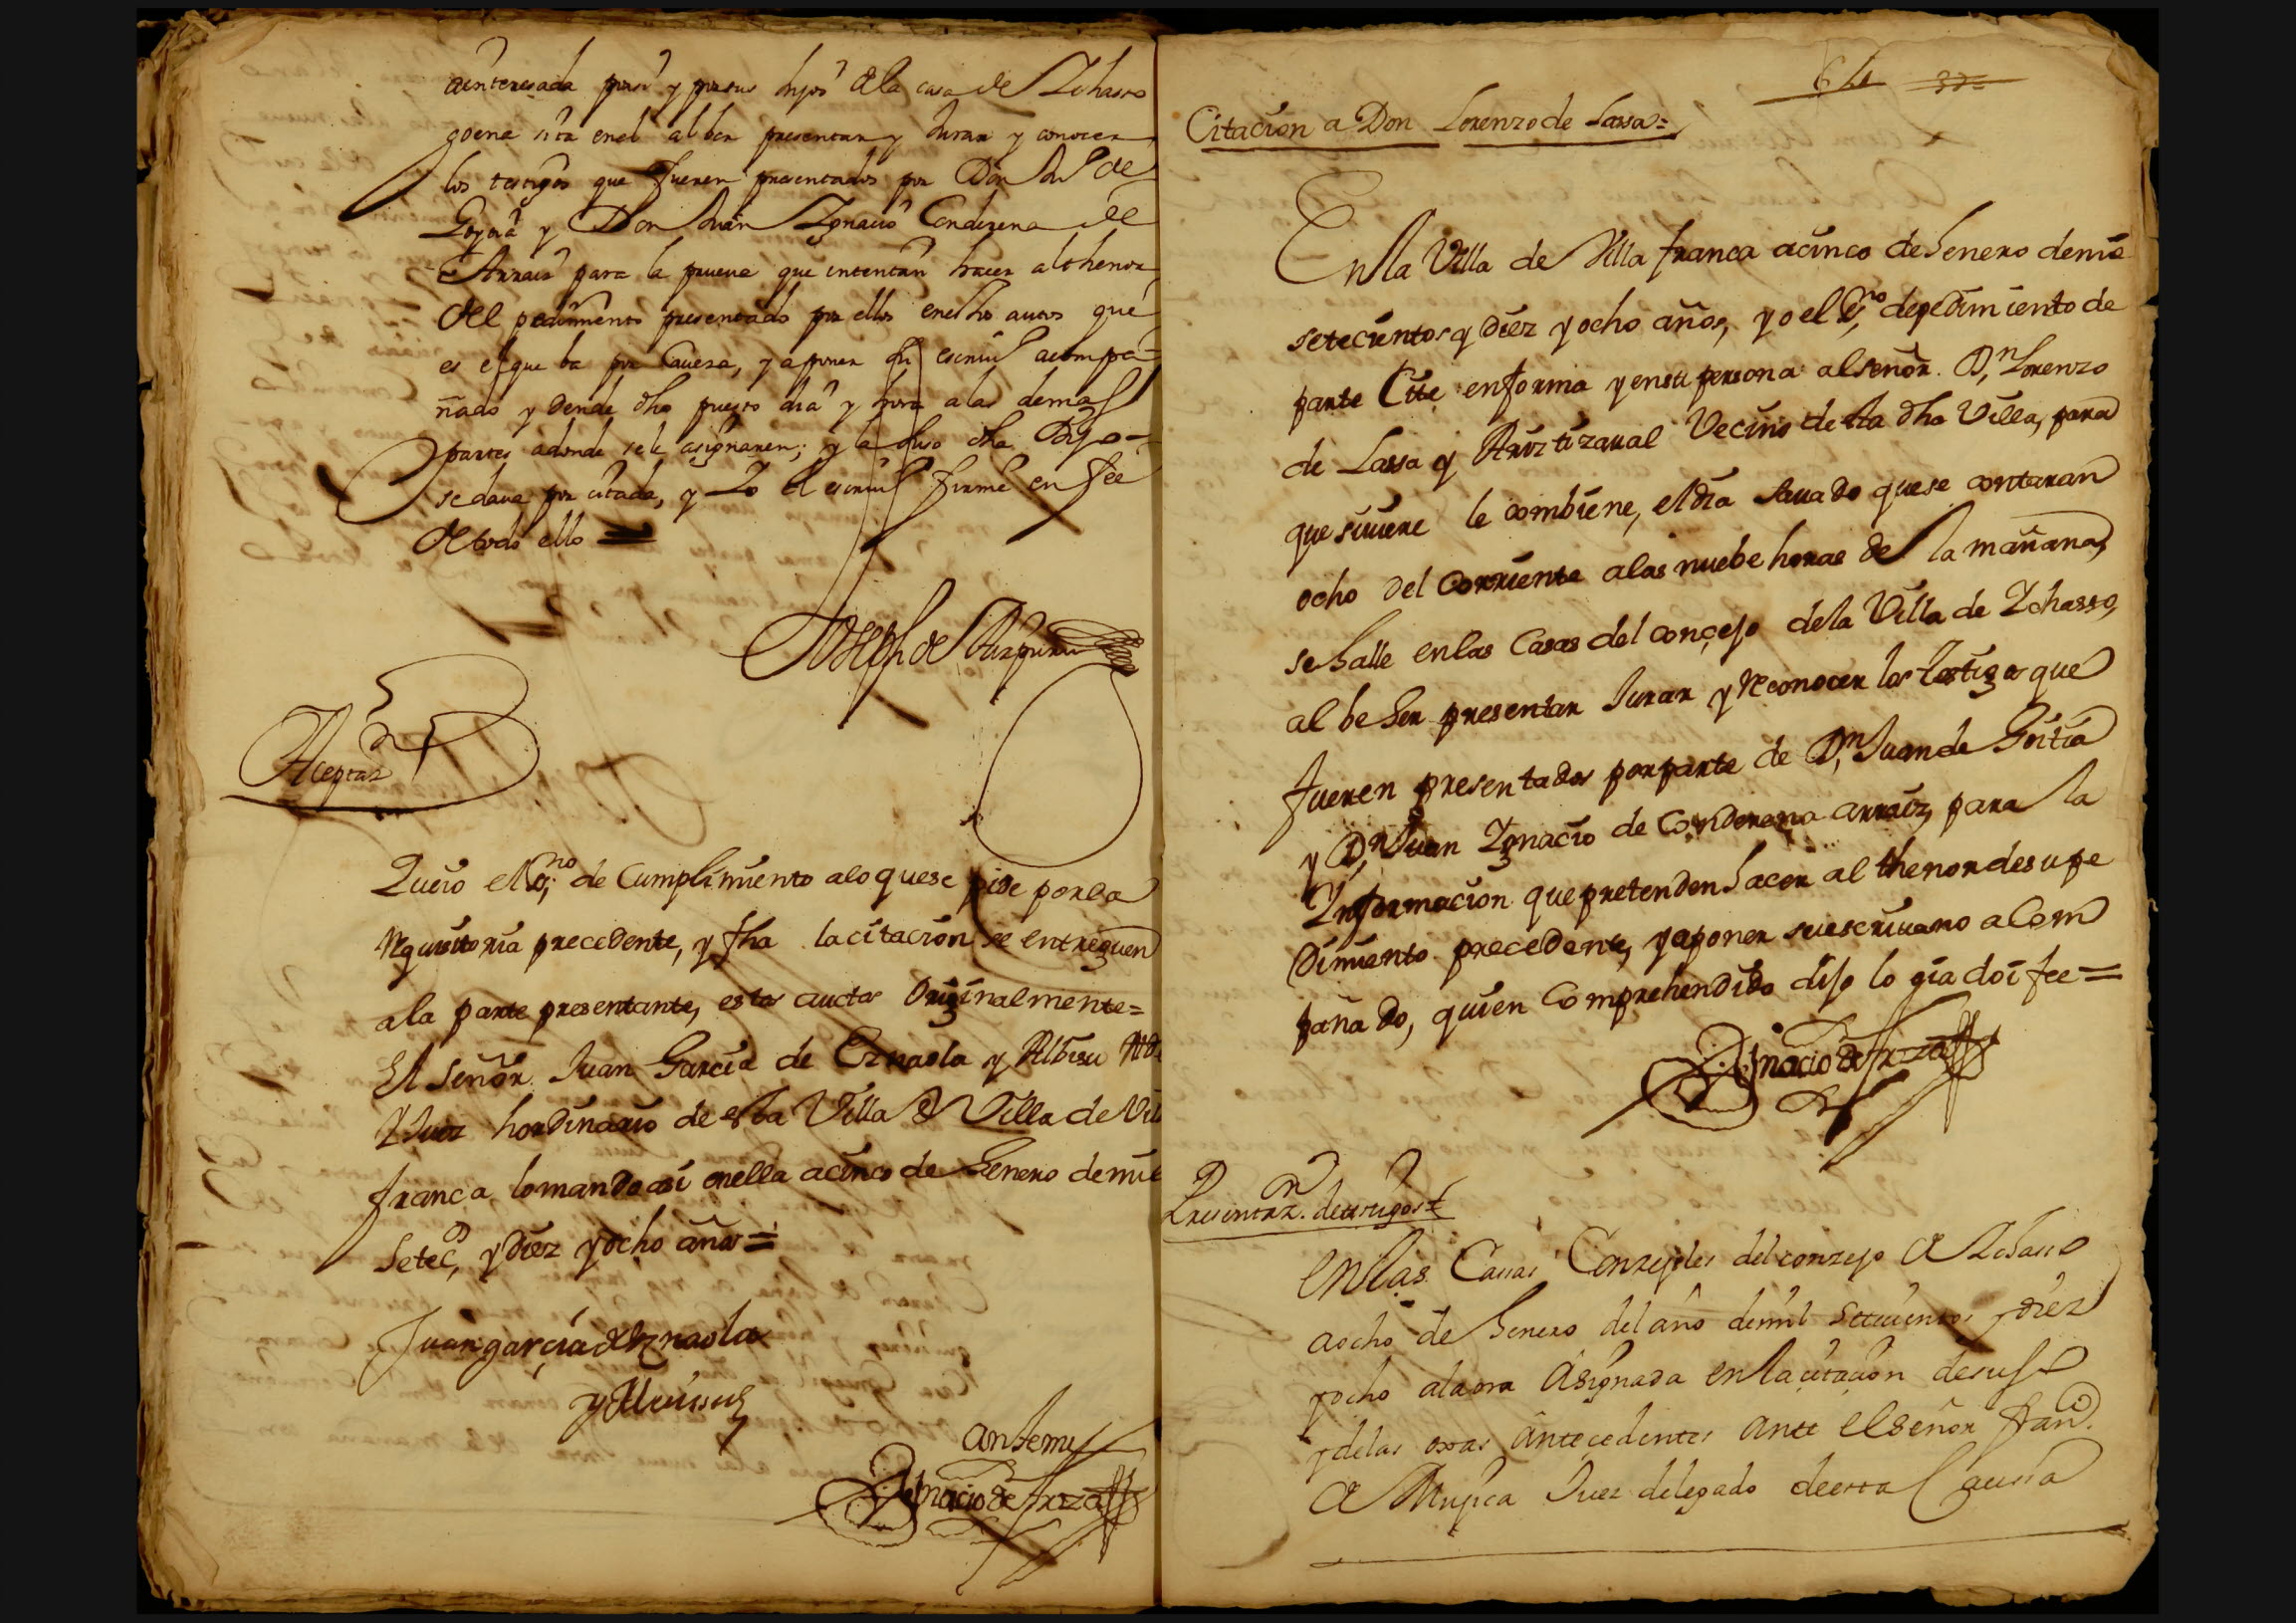 ainteresada por si y por sus hijos de la casa de Ichasso
goena sita enel al ber presentar y Jurar y conocer
los testigos que fueren presentados por Don Ju.º de
Goytia y Don Juan Ignacio Conderena de
Arraiz para la prueva que intentan hacer al thenor
del pedimento presentado por ellos en dhos autos que
es el que ba por Caveza, y aponer su escriuº acompa-
ñado y dende dho puesto dia y hora a las demas
partes adonde se le asignaren; y la suso dha Dijo
se dava por citada, y Yo el escriuº firme en fee
de todo ello
Joseph de Aizpuru
Aceptaz.on
Que io el S.no de Cumplimiento alo quese pide porla
Requisitoria precedente, y fha la citacion se entreguen
ala parte presentante, estos auctos originalmente=
El Señor Juan Garcia de Oznaola y Albisu Alde
Y Juez hordinario de esta Villa de Villa de Vill
franca lo mando asi enella acinco de Henero de mil
Setec.s y diez y ocho años =
Juan garçia de Oznaola
y Aluisu
ante mi
Ignacio de Yrza
6
Citacion a Don Lorenzo de Lassa=
En la Villa de Villa franca acinco de henero de mil
setecientos y diez y ocho años, yo el S.no depedimiento de
parte Cite enforma y ensu persona alseñor D.n Lorenzo
de Lassa y Aroztizaval Vecino de sta dha Villa, para
que siuiere le combiene, eldia Sauado quese contaran
ocho del corriente alas nuebe horas de la mañana,
se halle enlas Casas del conçejo dela Villa de Ichasso,
al beher presentar Jurar y Reconocer los testigos que
fueren presentados porparte de D.n Juan de Goitia
y D.n Juan Ignacio de Conderena arraiz, para la
Informacion que pretenden hacer al thenor desu pe
dimiento precedente, y aponer su escriuano acom
pañado, quien Comprehendido dijo lo oia doi fee =
Ignacio de Yrza
Presentaz.on de testigos =
En las Casas Conzejiles del conzejo de Ichasso
a ocho de henero del año de mil setecientos y diez
y ocho ala ora asignada en la citacion desuso
y delas otras antecedentes ante el señor Fran.co
de Mujica Juez delegado de esta Causa